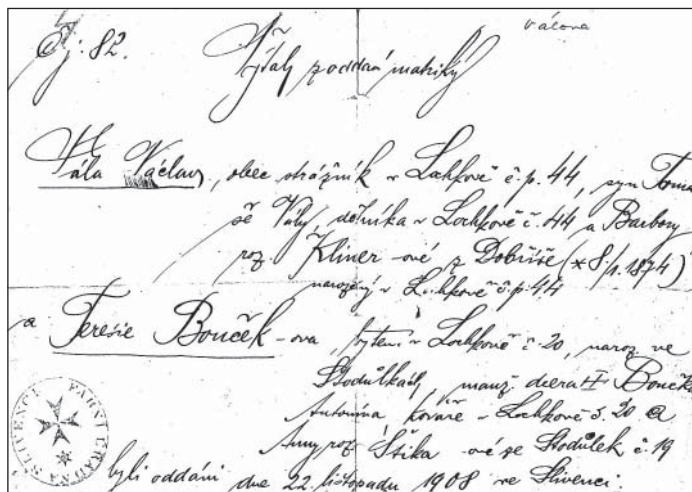 Válova
Čj: 82.
Výtah z oddací matriky
Vála Václav, obec. strážník v Lochkově č.p. 44, syn Tomá
še Vály, dělníka v Lochkově č. 44 a Barbory
roz. Kliner-ové z Dobříše (*8/1. 1874)
narozený v Lochkově č.p. 44
a Teresie Bouček-ova, bytem v Lochkově č. 20, naroz. ve
Stodůlkách, manž. dcera Boučka
Antonína kováře v Lochkově č. 20 a
Anny roz. Štika-ové ze Stodůlek č. 19
byli oddáni dne 22. listopadu 1908 ve Slivenci.
FARNÍ ÚŘAD NA SLIVENCI